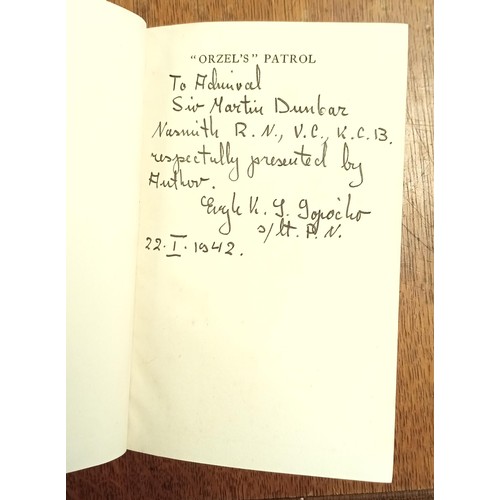 "ORZEL'S" PATROL
To Admiral
Sir Martin Dunbar
Nasmith R.N., V.C., K.C.B.
respectfully presented by
Author.
K. S. Sopoćko
s/Lt. P.N.
22.I.1942.